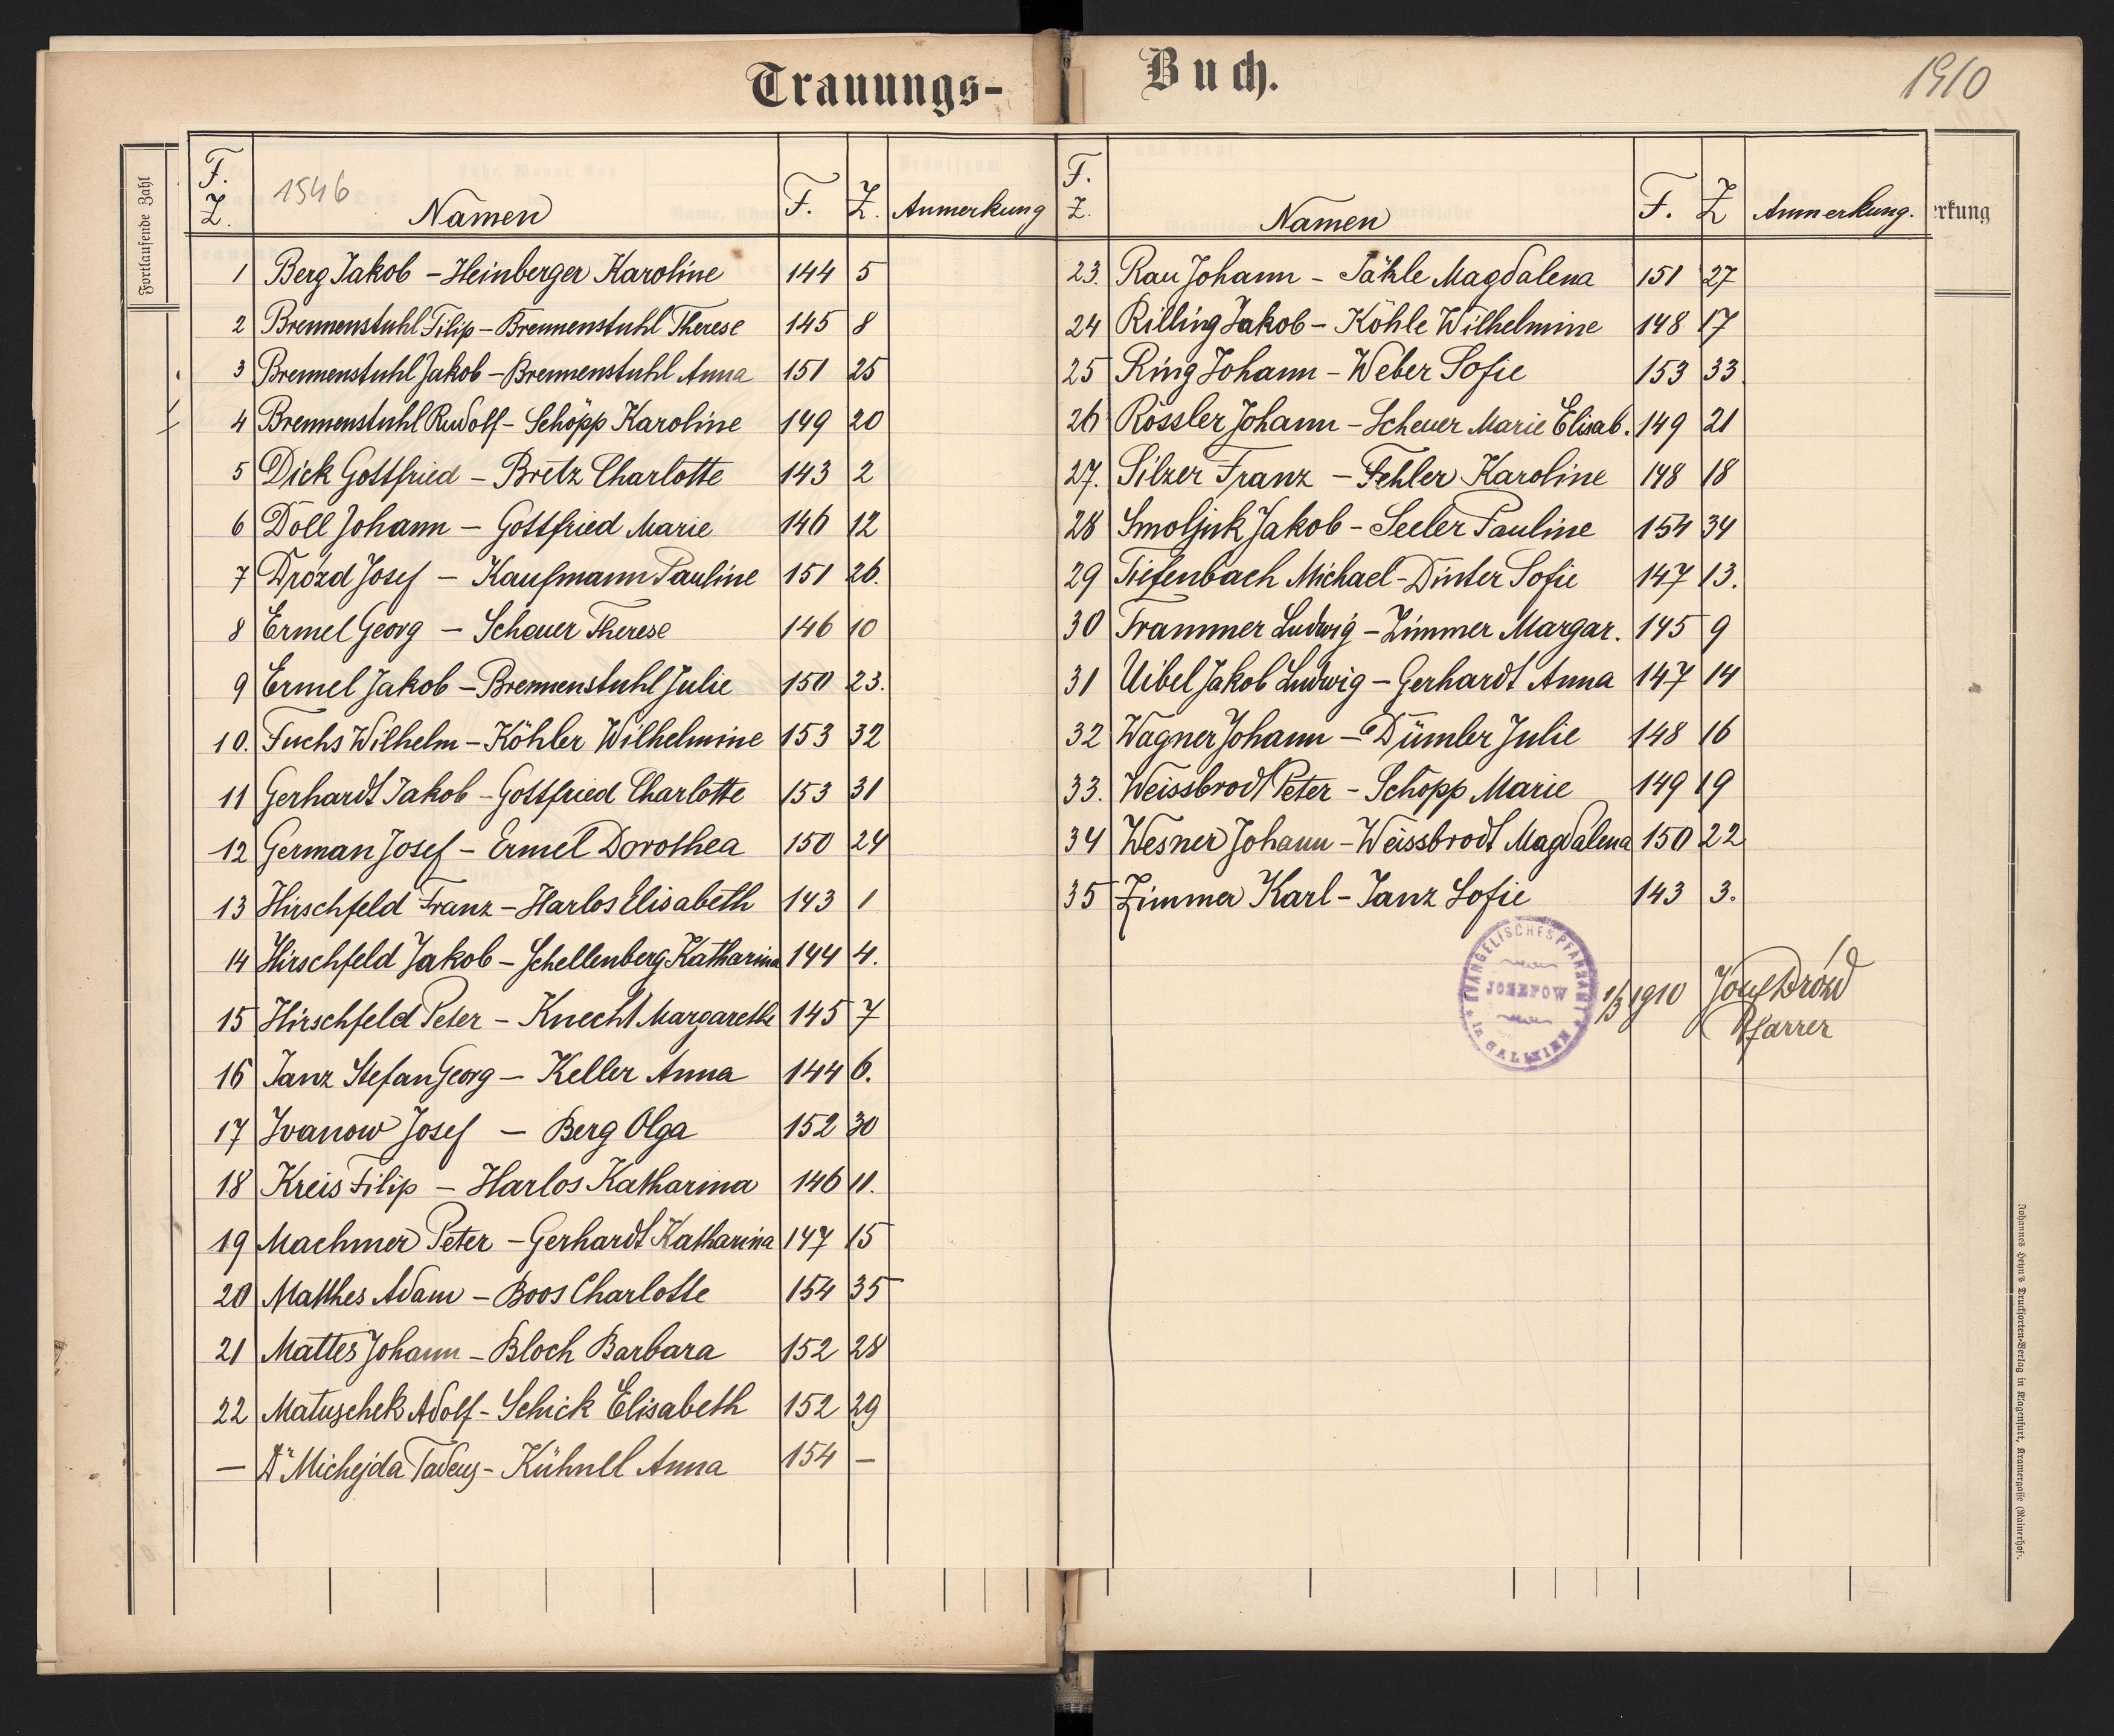 Trauungs-
Buch.
1910
Fortlaufende Zahl
F. Z. 1546 Namen F. Z. Anmerkung
1 Berg Jakob – Heinberger Karoline 144 5
2 Brennenstuhl Filip – Brennenstuhl Therese 145 8
3 Brennenstuhl Jakob – Brennenstuhl Anna 151 25
4 Brennenstuhl Rudolf – Schöpp Karoline 149 20
5 Dick Gottfried – Bretz Charlotte 143 2
6 Doll Johann – Gottfried Marie 146 12
7 Drozd Josef – Kaufmann Pauline 151 26.
8 Ermel Georg – Schauer Therese 146 10
9 Ermel Jakob – Brennenstuhl Julie 150 23.
10. Fuchs Wilhelm – Köhler Wilhelmine 153 32
11 Gerhardt Jakob – Gottfried Charlotte 153 31
12 German Josef – Ermel Dorothea 150 24
13 Hirschfeld Franz – Harlos Elisabeth 143 1
14 Hirschfeld Jakob – Schellenberg Katharina 144 4.
15 Hirschfeld Peter – Knecht Margarethe 145 7
16 Janz Stefan Georg – Keller Anna 144 6.
17 Ivanow Josef – Berg Olga 152 30
18 Kreis Filip – Harlos Katharina 146 11.
19 Machmer Peter – Gerhardt Katharina 147 15
20 Matthes Adam – Boos Charlotte 154 35
21 Mattes Johann – Bloch Barbara 152 28
22 Matuschek Adolf – Schick Elisabeth 152 29
— Dr Michejda Tadeus – Kühnel Anna 154 —
F. Z. Namen F. Z Anmerkung.
erkung
23. Rau Johann – Jäkle Magdalena 151 27
24 Rilling Jakob – Köhle Wilhelmine 148 17
25 Ring Johann – Weber Sofie 153 33
26 Rössler Johann – Scheuer Marie Elisab. 149 21
27. Silzer Franz – Fehler Karoline 148 18
28 Smoljuk Jakob – Seeler Pauline 154 34
29 Tiefenbach Michael – Dinter Sofie 147 13.
30 Trammer Ludwig – Zimmer Margar. 145 9
31 Uibel Jakob Ludwig – Gerhardt Anna 147 14
32 Wagner Johann – Dümler Julie 148 16
33. Weissbrodt Peter – Schöpp Marie 149 19
34 Wesner Johann – Weissbrodt Magdalena 150 22
35 Zimmer Karl – Janz Sofie 143 3.
EVANGELISCHES PFARRAMT
JOSEFOW
in GALIZIEN
1/3 1910 Josef Drózd
Pfarrer
Johannes Heyn's Drucksorten-Verlag in Klagenfurt, Kramergasse (Rainerhof).